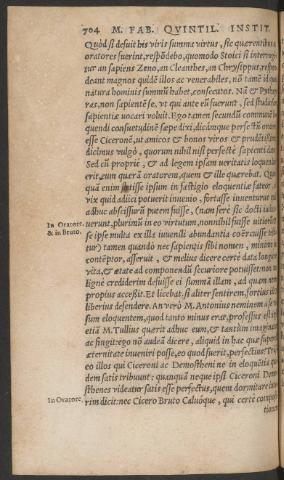 704 M. FAB. QVINTIL. INSTIT.
Quòd si defuit his viris summa virtus, sic quærentibus an
oratores fuerint, respōdebo, quomodo Stoici si interrogē-
tur an sapiens Zeno, an Cleanthes, an Chrysippus, respon-
deant magnos quidē illos ac venerabiles, nō tamē id quod
natura hominis summū habet, consecutos. Nā & Pythago
ras, non sapientē se, vt qui ante eū fuerunt, sed studiosum
sapientiæ vocari voluit. Ego tamen secundū communē lo
quendi consuetudinē sæpe dixi, dicámque perfectū oratorē
esse Ciceronē, vt amicos & bonos viros & prudētissimos
dicimus vulgò, quorum nihil nisi perfectè sapienti datur.
Sed cū propriè, & ad legem ipsam veritatis loquendū
erit, eum quæram oratorem, quem & ille quærebat. Quā-
quā enim stetisse ipsum in fastigio eloquentiæ fateor, ac
vix quid adiici potuerit inuenio, fortasse inuenturus quid
adhuc abscissurū putem fuisse, (nam ferè sic docti iudica-
In Oratore.
uerunt, plurimū in eo virtutum, nonnihil fuisse vitiorū: &
& in Bruto.
se ipse multa ex illa iuuenili abundantia coërcuisse testa-
tur) tamen quando nec sapientis sibi nomen, minimè sui
contēptor, asseruit, & melius dicere certè data longiore
vita, & ætate ad componendū securiore potuisset: non ma
lignè crediderim defuisse ei summā illam, ad quam nemo
propius accessit. Et licebat, si aliter sentirem, fortiùs id
liberiùs defendere. An verò M. Antonius neminem à se vi
sum eloquentem, quod tanto minus erat, professus est: ipse
etiā M. Tullius quærit adhuc eum, & tantùm imaginatur
ac fingit: ego nō audeā dicere, aliquid in hac quæ superest
æternitate inueniri posse, eo quod fuerit, perfectius? Trās-
eo illos qui Ciceroni ac Demostheni ne in eloquētia qui-
dem satis tribuunt: quanquā neque ipsi Ciceroni Demo-
sthenes videatur satis esse perfectus, quem dormitare inte-
In Oratore.
rim dicit: nec Cicero Bruto Caluóque, qui certè composi-
tionem